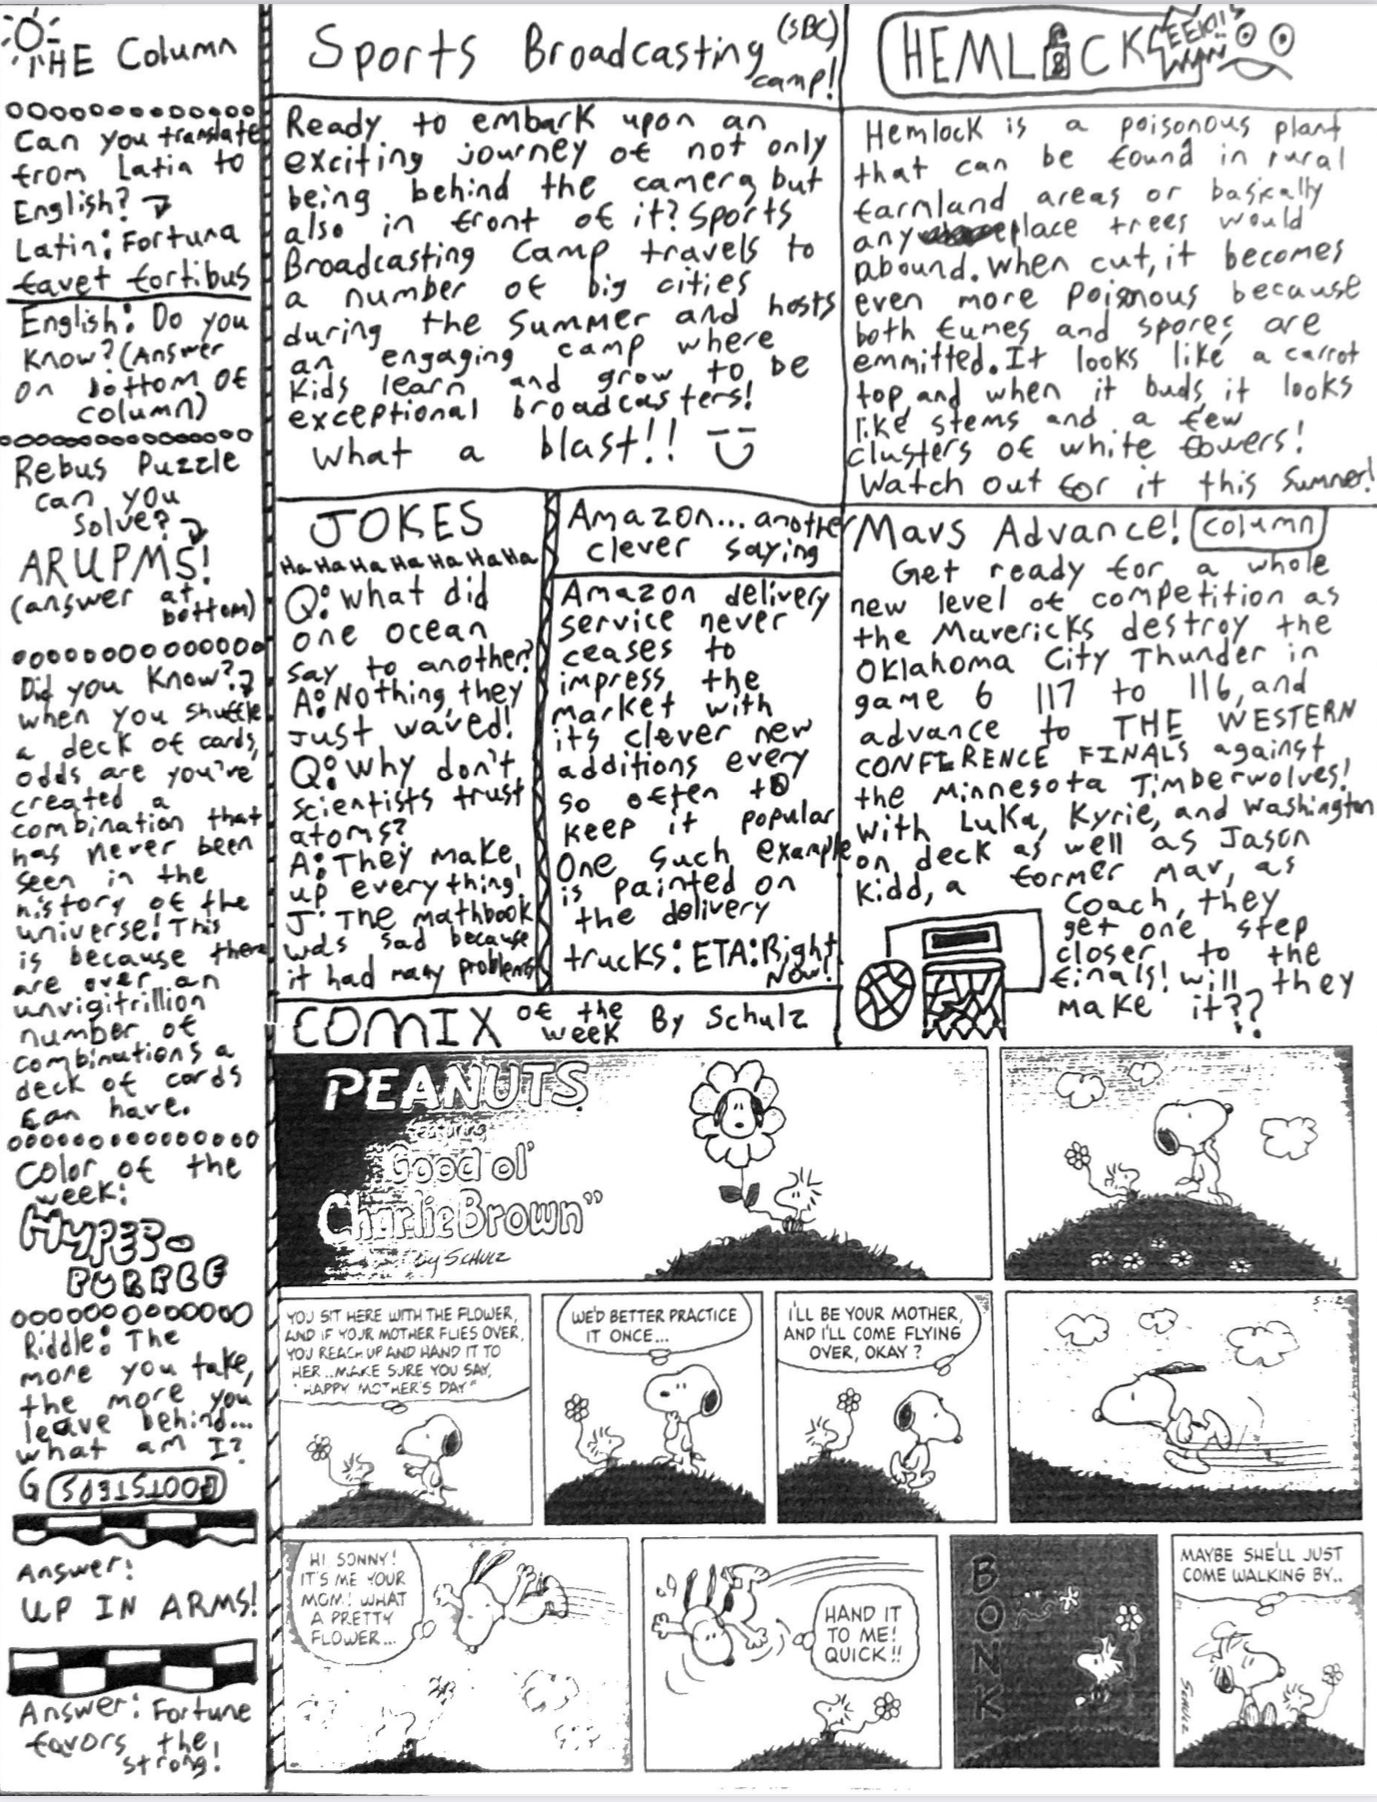 THE Column
Can you translate
from Latia to
English?
Latin: Fortuna
favet fortibus
English: Do you
know? (Answer
on bottom of
column)
Rebus Puzzle
can you
solve?
ARUPMS!
(answer at
bottom)
Did you know?
when you shuffle
a deck of cards,
odds are you've
created a
combination that
has never been
seen in the
history of the
universe! This
is because there
are over an
unvigitrillion
number of
combinations a
deck of cards
can have.
Color of the
week:
HYPER-
PURPLE
Riddle: The
more you take,
the more you
leave behind...
what am I?
FOOTSTEPS
Answer:
UP IN ARMS!
Answer: Fortune
favors the
strong!
Sports Broadcasting (SBC)
camp!
Ready to embark upon an
exciting journey of not only
being behind the camera, but
also in front of it? Sports
Broadcasting Camp travels to
a number of big cities
during the summer and hosts
an engaging camp where
kids learn and grow to be
exceptional broadcasters!
What a blast!!
HEMLOCK EEK!!
Hemlock is a poisonous plant
that can be found in rural
farmland areas or basically
any place trees would
abound. When cut, it becomes
even more poisonous because
both fumes and spores are
emmitted. It looks like a carrot
top, and when it buds, it looks
like stems and a few
clusters of white fowers!
Watch out for it this Summer!
JOKES
Ha Ha Ha Ha Ha Ha Ha
Q: What did
one ocean
say to another?
A: Nothing, they
just waved!
Q: Why don't
scientists trust
atoms?
A: They make
up everything.
J: The mathbook
was sad because
it had many problems
Amazon... another
clever saying
Amazon delivery
service never
ceases to
impress the
market with
its clever new
additions every
so often to
keep it popular
One such example
is painted on
the delivery
trucks: ETA: Right
Now!
Mavs Advance! column
Get ready for a whole
new level of competition as
the Mavericks destroy the
Oklahoma City Thunder in
game 6 117 to 116, and
advance to THE WESTERN
CONFERENCE FINALS against
the Minnesota Timberwolves!
With Luka, Kyrie, and Washington
on deck as well as Jason
Kidd, a former Mav, as
Coach, they
get one step
closer to the
finals! Will they
make it??
COMIX of the
week By Schulz
PEANUTS
featuring
"Good ol'
Charlie Brown"
by SCHULZ
YOU SIT HERE WITH THE FLOWER,
AND IF YOUR MOTHER FLIES OVER,
YOU REACH UP AND HAND IT TO
HER...MAKE SURE YOU SAY,
"HAPPY MOTHER'S DAY"
WE'D BETTER PRACTICE
IT ONCE...
I'LL BE YOUR MOTHER,
AND I'LL COME FLYING
OVER, OKAY?
HI SONNY!
IT'S ME YOUR
MOM! WHAT
A PRETTY
FLOWER...
HAND IT
TO ME!
QUICK!!
BONK
MAYBE SHE'LL JUST
COME WALKING BY..
SCHULZ